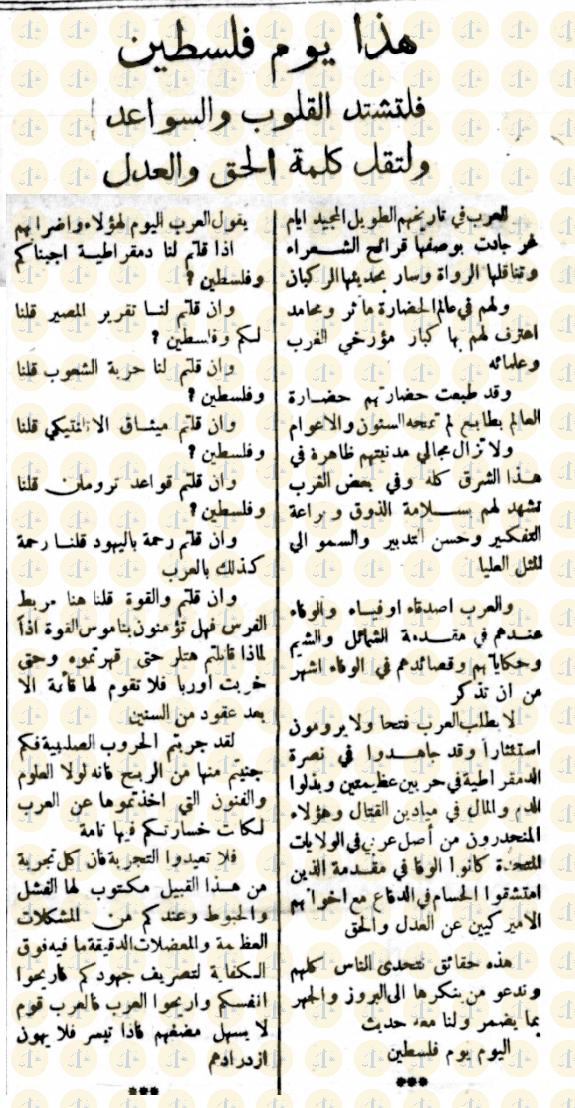 هذا يوم فلسطين
فلتشتد القلوب والسواعد
ولتقل كلمة الحق والعدل
للعرب في تاريخهم الطويل المجيد ايام
غر جادت بوصفها قرائح الشعراء
وتناقلها الرواة وسار بحديثها الركبان
ولهم في عالم الحضارة مآثر ومحامد
اعترف لهم بها كبار مؤرخي الغرب
وعلمائه
وقد طبعت حضارتهم حضارة
العالم بطابع لم تمحه السنون والاعوام
ولا تزال مجالي مدنيتهم ظاهرة في
هذا الشرق كله وفي بعض الغرب
تشهد لهم بسلامة الذوق وبراعة
التفكير وحسن التدبير والسمو الى
المثل العليا
والعرب اصدقاء اوفياء والوفاء
عندهم في مقدمة الشمائل والشيم
وحكاياتهم وقصائدهم في الوفاء اشهر
من ان تذكر
لا يطلب العرب فتحا ولا يرومون
استئثاراً وقد جاهدوا في نصرة
الدمقراطية في حربين عظيمتين وبذلوا
الدم والمال في ميادين القتال وهؤلاء
المنحدرون من أصل عربي في الولايات
المتحدة كانوا الوفا في مقدمة الذين
امتشقوا الحسام في الدفاع مع اخوانهم
الاميركيين عن العدل والحق
هذه حقائق نتحدى الناس كلهم
وندعو من ينكرها الى البروز والجهر
بما يضمر ولنا معه حديث
اليوم يوم فلسطين
***
يقول العرب اليوم لهؤلاء واضرابهم
اذا قلتم لنا دمقراطية اجبناكم
وفلسطين ؟
وان قلتم لنا تقرير المصير قلنا
لكم وفلسطين ؟
وان قلتم لنا حرية الشعوب قلنا
وفلسطين ؟
وان قلتم ميثاق الاتلنتيكي قلنا
وفلسطين ؟
وان قلتم قواعد ترومان قلنا
وفلسطين ؟
وان قلتم رحمة باليهود قلنا رحمة
كذلك بالعرب
وان قلتم والقوة قلنا هنا مربط
الفرس فهل تؤمنون بناموس القوة اذاً
لماذا قاتلتم هتلر حتى قهرتموه وحتى
خربت اوربا فلا تقوم لها قائمة الا
بعد عقود من السنين
لقد جربتم الحروب الصليبية فكم
جنيتم منها من الربح فانه لولا العلوم
والفنون التي اخذتموها عن العرب
لكانت خسارتكم فيها تامة
فلا تعيدوا التجربة فان كل تجربة
من هذا القبيل مكتوب لها الفشل
والحبوط وعندكم من المشكلات
العظيمة والمعضلات الدقيقة ما فيه فوق
الكفاية لتصريف جهودكم فاريحوا
انفسكم واريحوا العرب فالعرب قوم
لا يسهل مضغهم فاذا تيسر فلا يهون
ازدرادهم
***